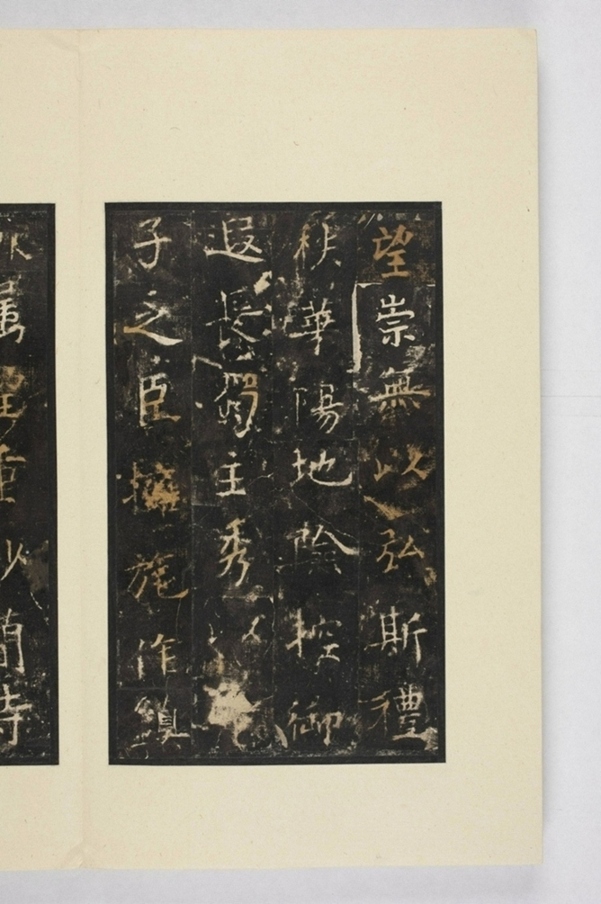 望崇無以弘斯禮
秩華陽地險控御
遐長蜀主秀以
子之臣擁旄作鎮
望重
蘭